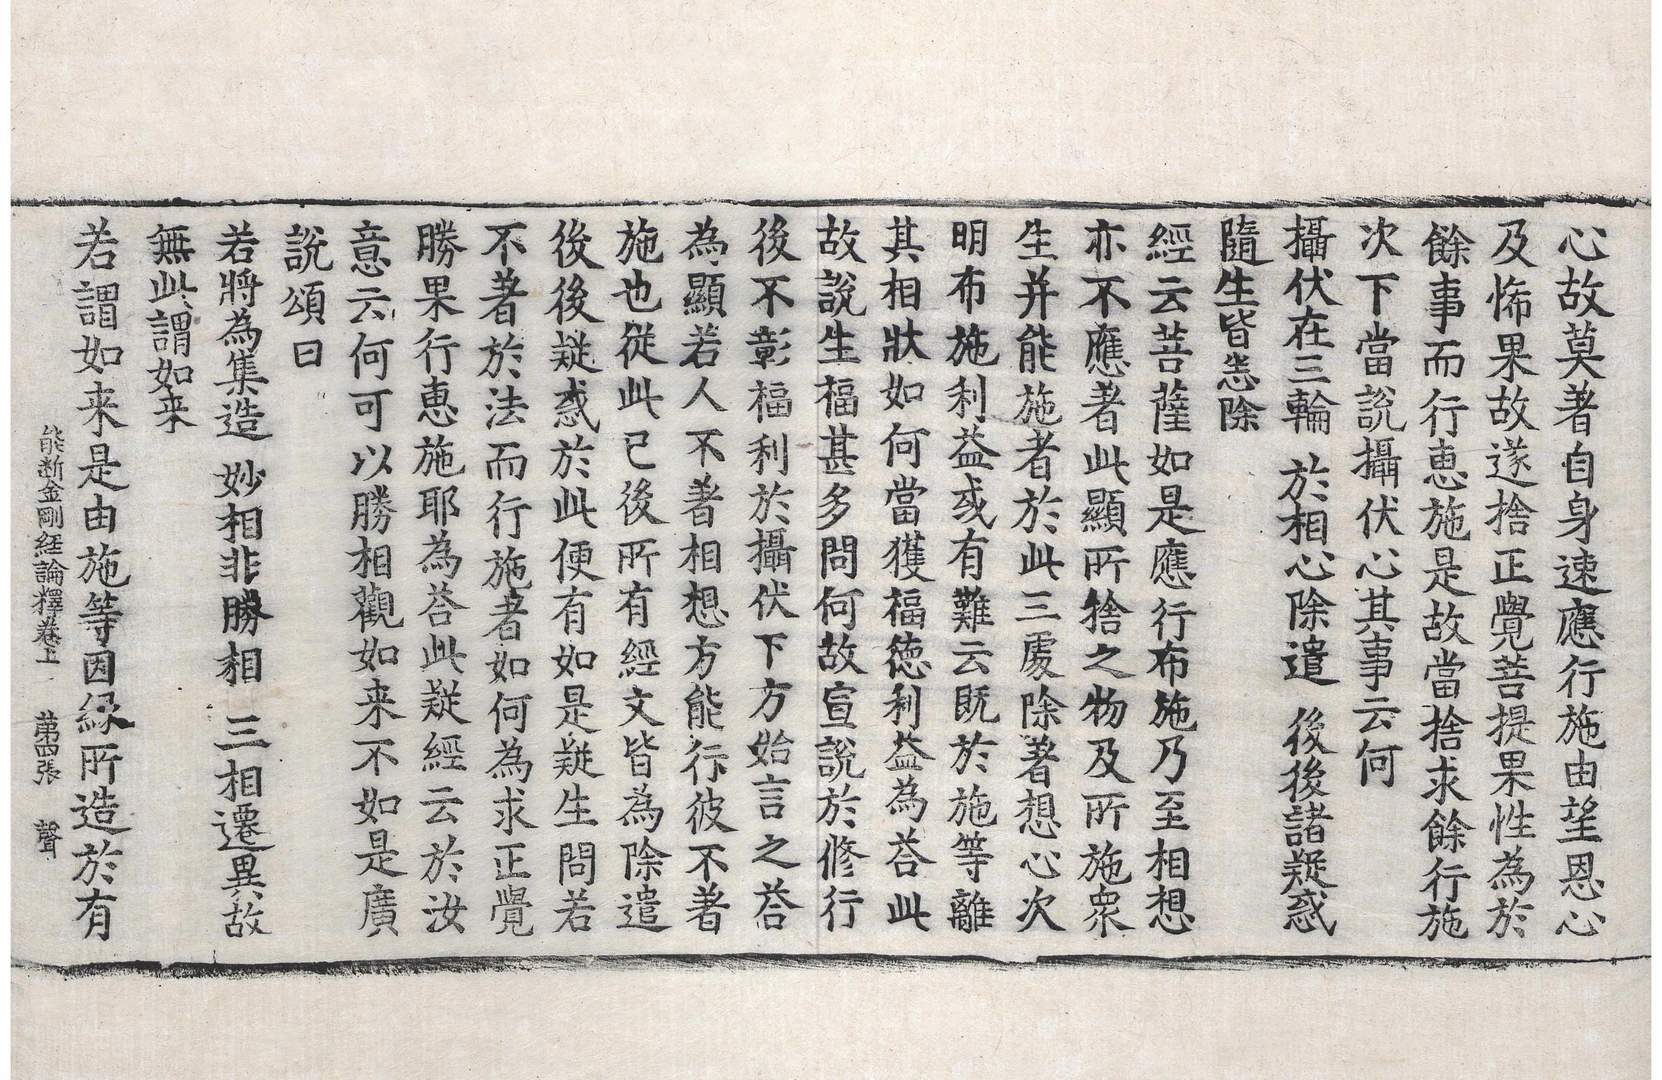 心故莫著自身速應行施由望恩心
及怖果故遂捨正覺菩提果性為於
餘事而行恵施是故當捨求餘行施
次下當說攝伏心其事云何
攝伏在三輪　於相心除遣　後後諸疑惑
隨生皆悉除
經云菩薩如是應行布施乃至相想
亦不應著此顯所捨之物及所施衆
生并能施者於此三處除著想心次
明布施利益或有難云既於施等離
其相狀如何當獲福徳利益為荅此
故說生福甚多問何故宣說於修行
後不彰福利於攝伏下方始言之荅
為顯若人不著相想方能行彼不著
施也從此已後所有經文皆為除遣
後後疑惑於此便有如是疑生問若
不著於法而行施者如何為求正覺
勝果行恵施耶為荅此疑經云於汝
意云何可以勝相觀如来不如是廣
說頌曰
若將為集造　妙相非勝相　三相遷異故
無此謂如来
若謂如来是由施等因縁所造於有
能斷金剛経論釋巻上　第四張　聲